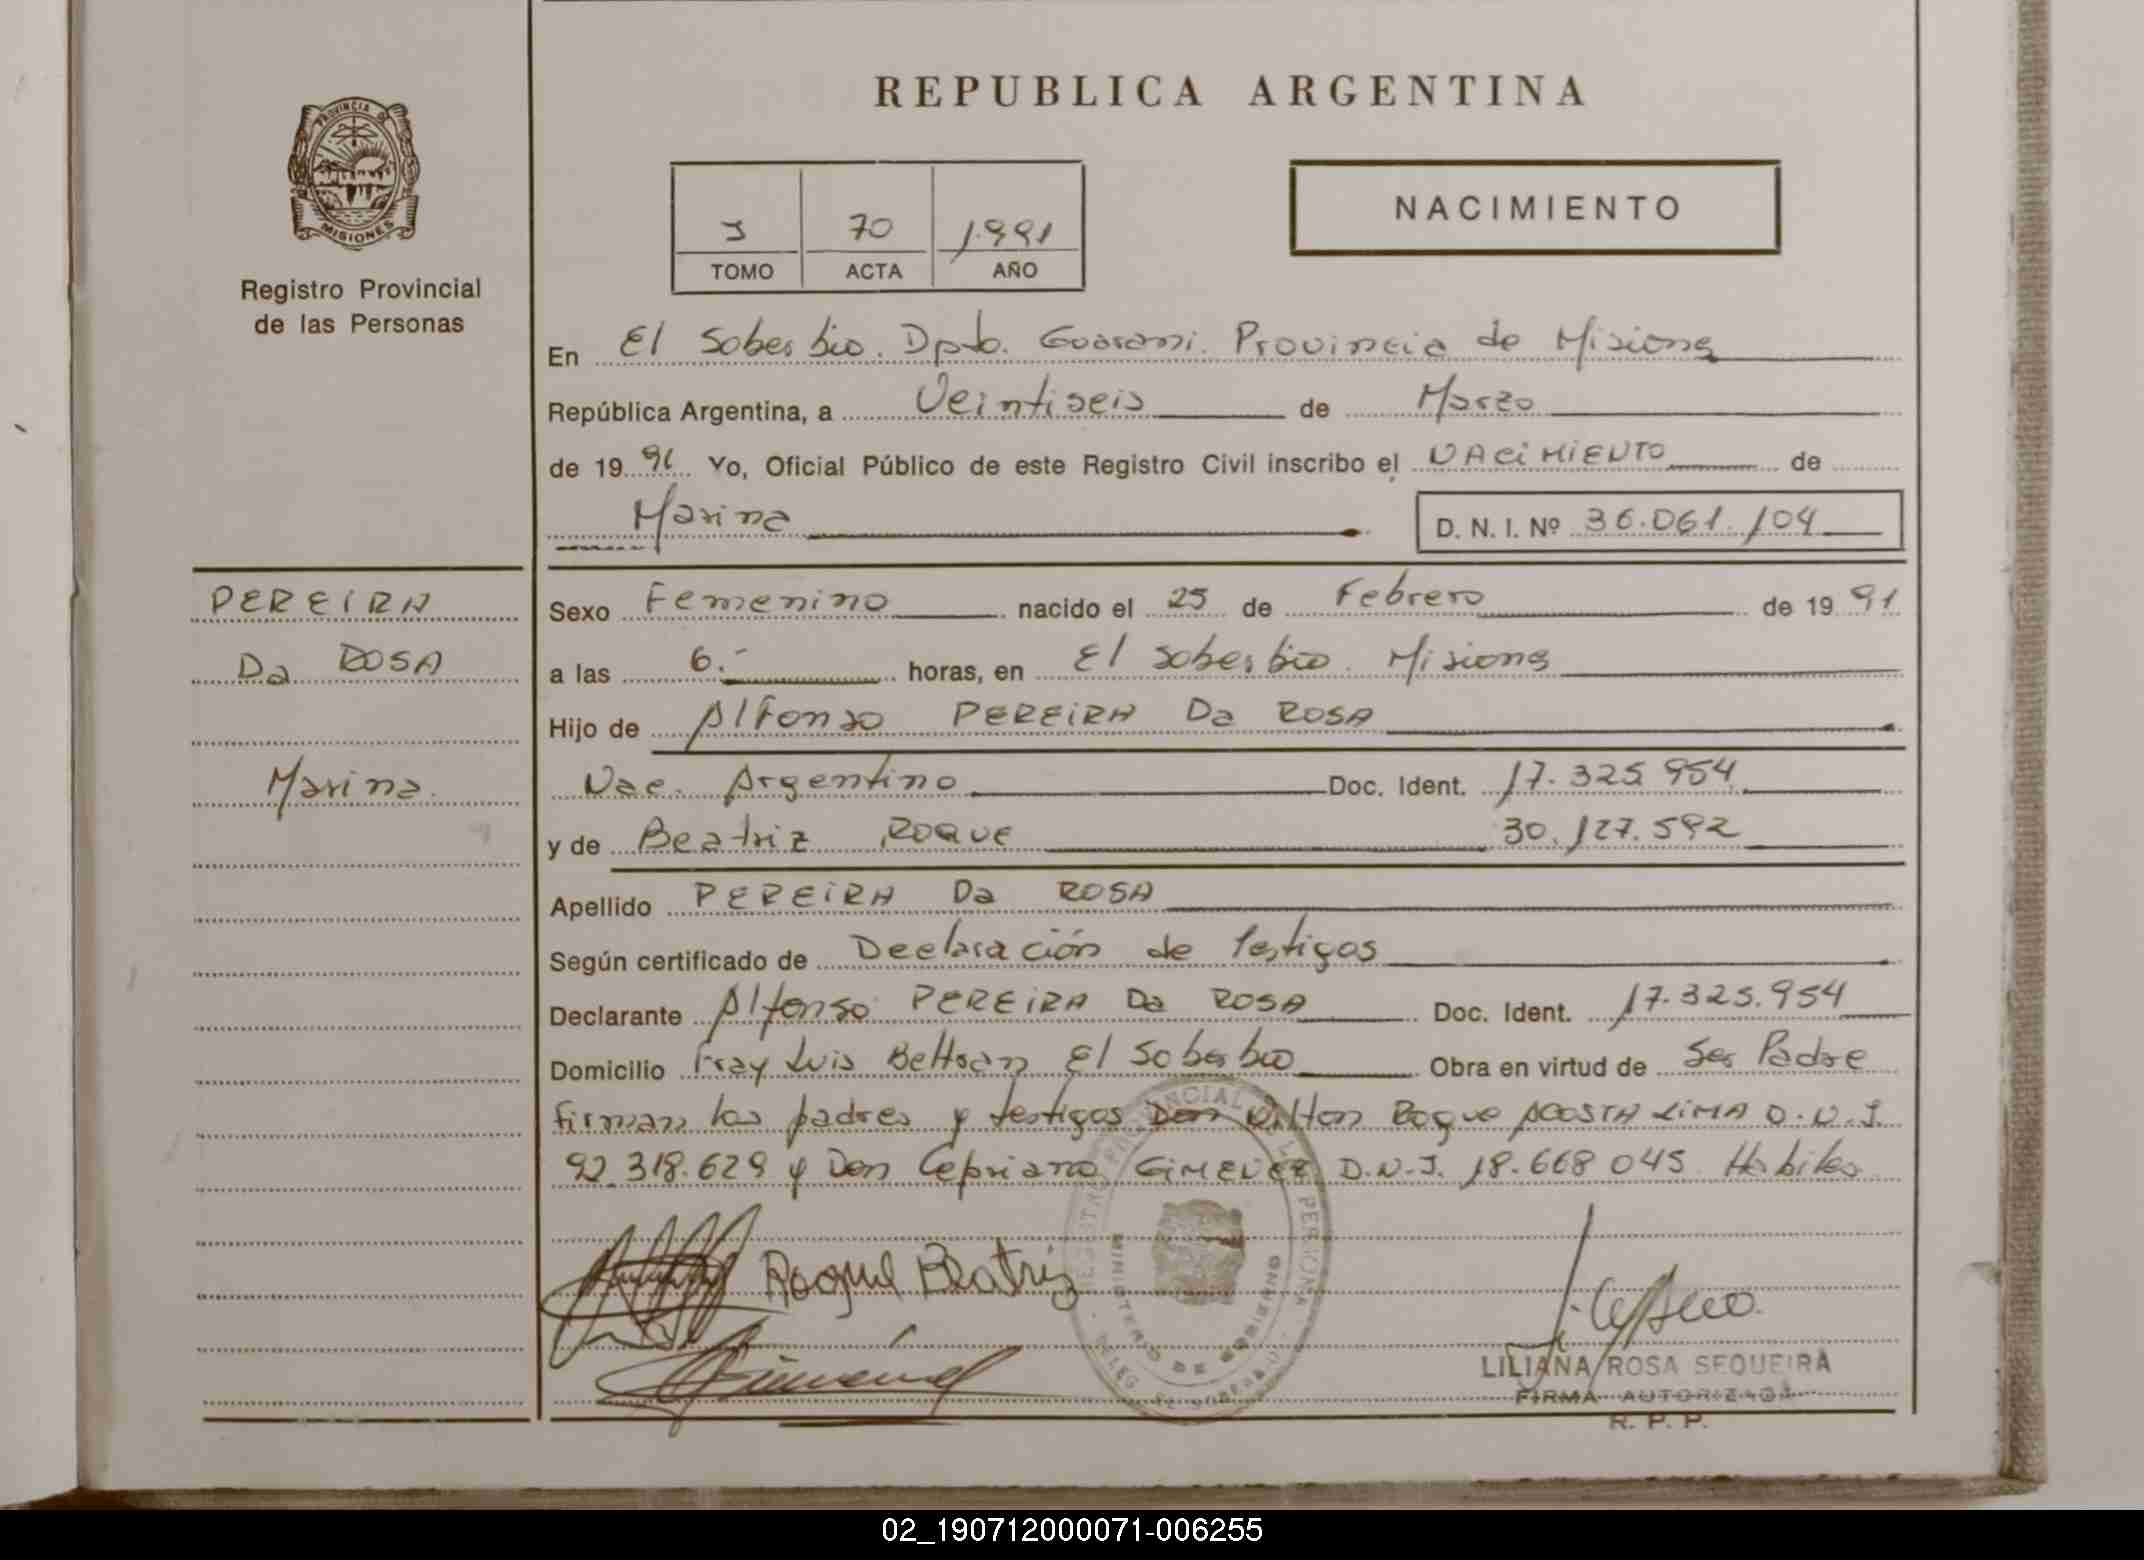 REPUBLICA ARGENTINA
PROVINCIA DE
MISIONES
Registro Provincial
de las Personas
J 70 1991
TOMO ACTA AÑO
NACIMIENTO
En El Soberbio. Dpto. Guarani. Provincia de Misiones
República Argentina, a Veintiseis de Marzo
de 19 91 Yo, Oficial Público de este Registro Civil inscribo el NACIMIENTO de
Marina D. N. I. Nº 36.061.104
PEREIRA
Da ROSA
Marina.
Sexo Femenino nacido el 25 de Febrero de 19 91
a las 6.- horas, en El Soberbio. Misiones
Hijo de Alfonso PEREIRA Da ROSA
Nac. Argentino Doc. Ident. 17.325.954
y de Beatriz ROQUE 30.127.592
Apellido PEREIRA Da ROSA
Según certificado de Declaración de Testigos
Declarante Alfonso PEREIRA Da ROSA Doc. Ident. 17.325.954
Domicilio Fray Luis Beltran El Soberbio Obra en virtud de Ser Padre
Firman los padres y testigos Don Roque ACOSTA LIMA D.N.I.
92.318.629 y Don Cepriano GIMENEZ D.N.I. 18.668.045 Habiles
Roque Beatriz
MINISTERIO DE GOBIERNO
LILIANA ROSA SEQUEIRA
FIRMA AUTORIZADA
R. P. P.
02_190712000071-006255